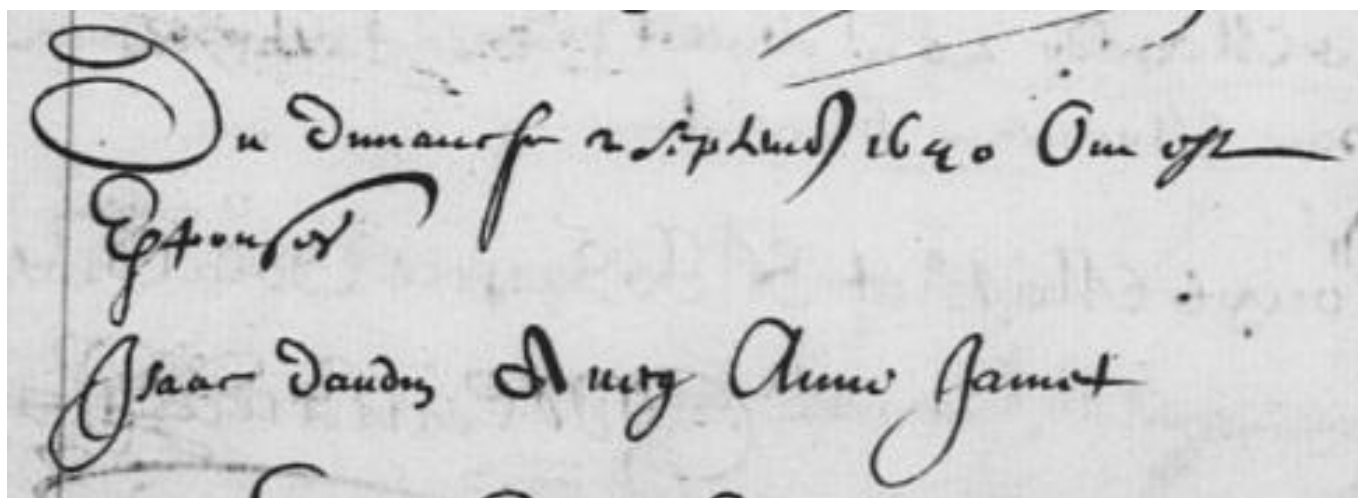 Du dimanche 2 septemb 1640 Ont est
Espouses
Isaac daudin Avecq Anne Jamet